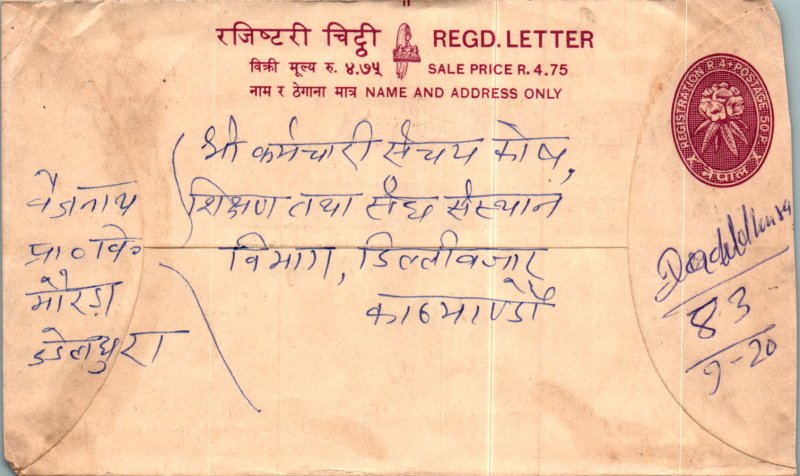 रजिष्टरी चिट्ठी REGD. LETTER
विक्री मूल्य रु. ४.७५ SALE PRICE R. 4.75
नाम र ठेगाना मात्र NAME AND ADDRESS ONLY
REGISTRATION R. 4 + POSTAGE 50 P.
नेपाल
श्री कर्मचारी संचय कोष,
शिक्षण तथा संघ संस्थान
विभाग, डिल्लीबजार
काठमाण्डौ
वैजनाथ
प्रा०वि०
डडेलधुरा
Dadeldhura
83
9-20